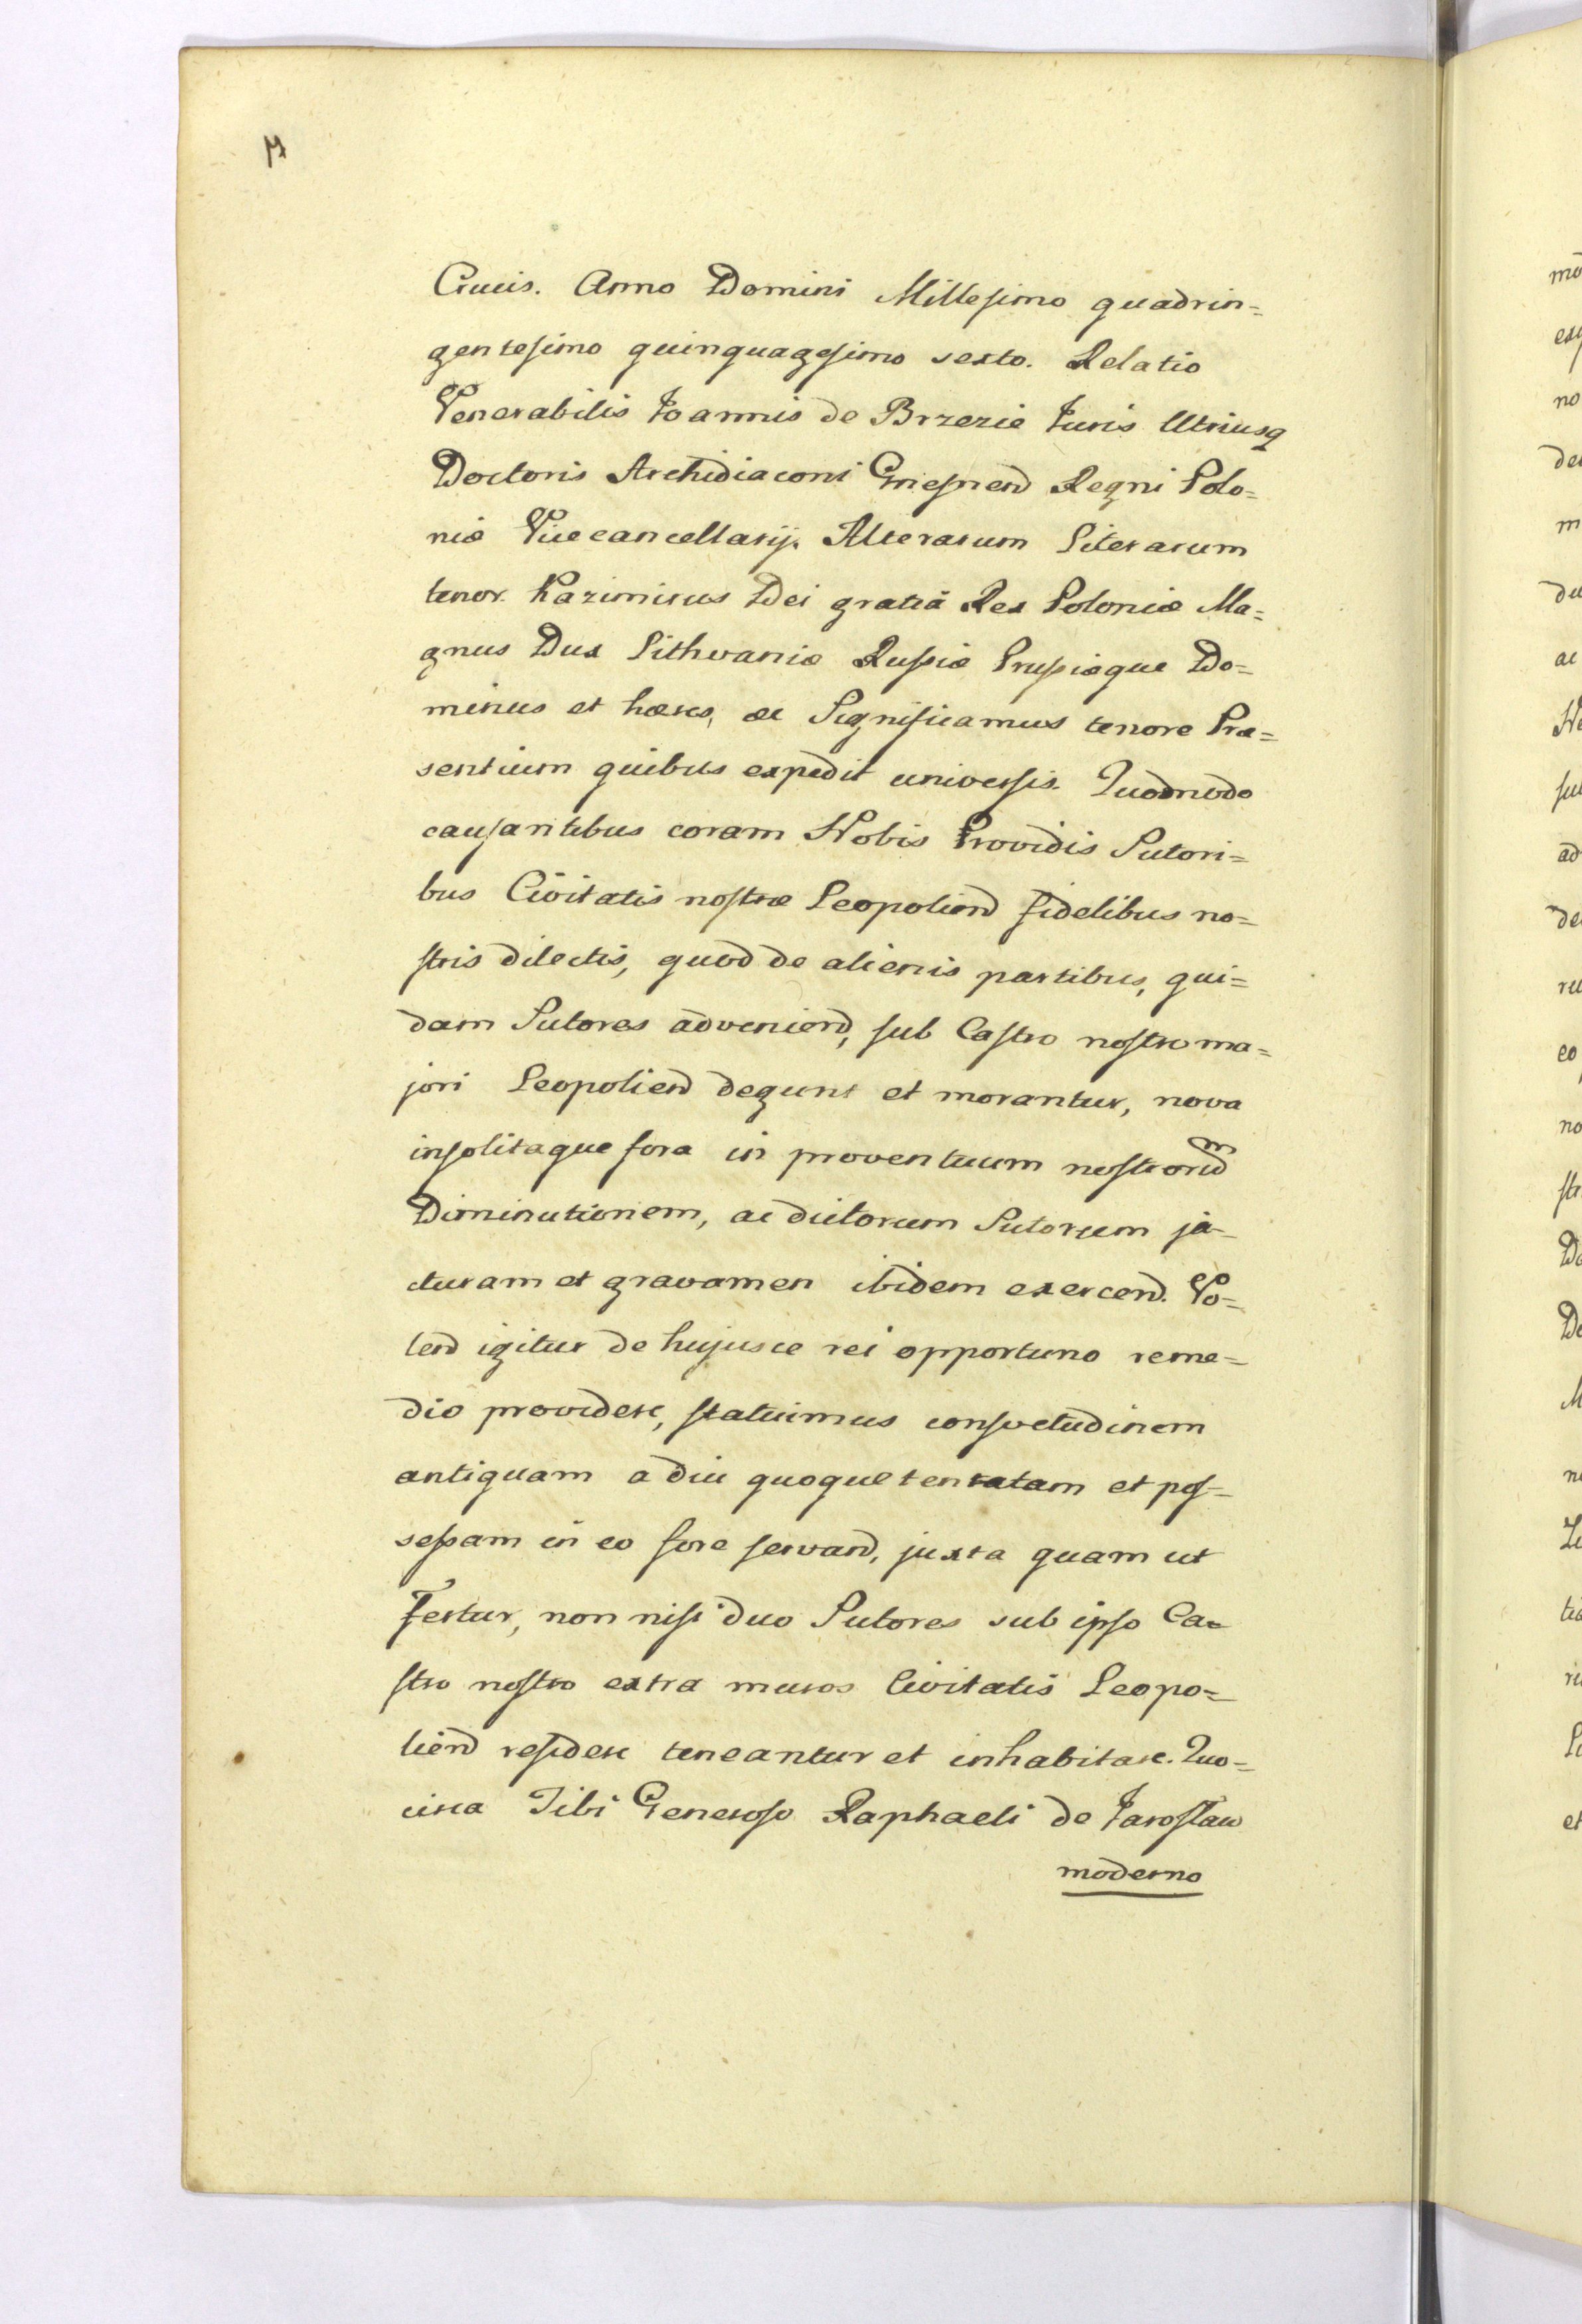 Crucis. Anno Domini Millesimo quadrin=
gentesimo quinquagesimo sexto. Relatio
Venerabilis Ioannis de Brzezie Iuris Utriusq
Doctoris Archidiaconi Gnesnend Regni Polo=
niæ Vicecancellarij. Alterarum Literarum
tenor. Kazimirus Dei gratiâ Rex Poloniæ Ma=
gnus Dux Lithvaniæ Russiæ Prussiæque Do=
minus et hæres, &c Significamus tenore Præ=
sentium quibus expedit universis. Quomodo
causantibus coram Nobis Providis Sutori=
bus Civitatis nostræ Leopoliend fidelibus no=
stris dilectis, quod de alienis partibus, qui=
dam Sutores adveniend, sub Castro nostro ma=
jori Leopoliend degunt et morantur, nova
insolitaque fora in proventuum nostrorum
Diminutionem, ac dictorum Sutorum ja=
cturam et gravamen ibidem exercend. Vo=
lend igitur de hujusce rei opportuno reme=
dio providere, statuimus consvetudinem
antiquam a diu quoque tentatam et pos=
sessam in eo fore servand, juxta quam ut
fertur, non nisi duo Sutores sub ipso Ca=
stro nostro extra muros Civitatis Leopo=
liend residere teneantur et inhabitare. Quo=
circa Tibi Generoso Raphaeli de Jarosław
moderno